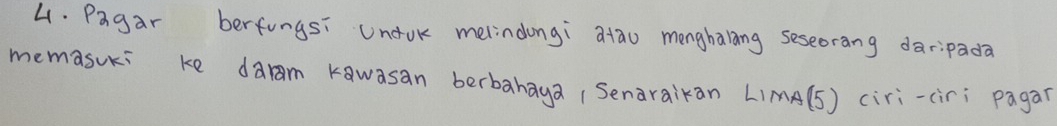 4. Pagar berfungsi untuk melindungi atau menghalang seseorang daripada
memasuki ke dalam kawasan berbahaya, Senaraikan LIMA(5) ciri-ciri pagar